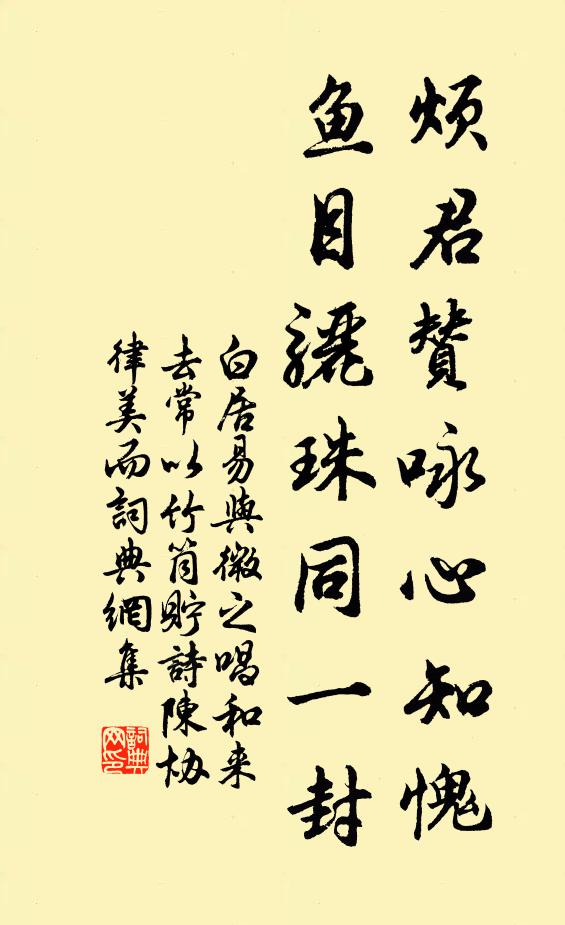 烦君赞咏心知愧
鱼目骊珠同一封
白居易與微之唱和来
去常以竹筒貯詩陳协
律美而詞典網集
詞典网印